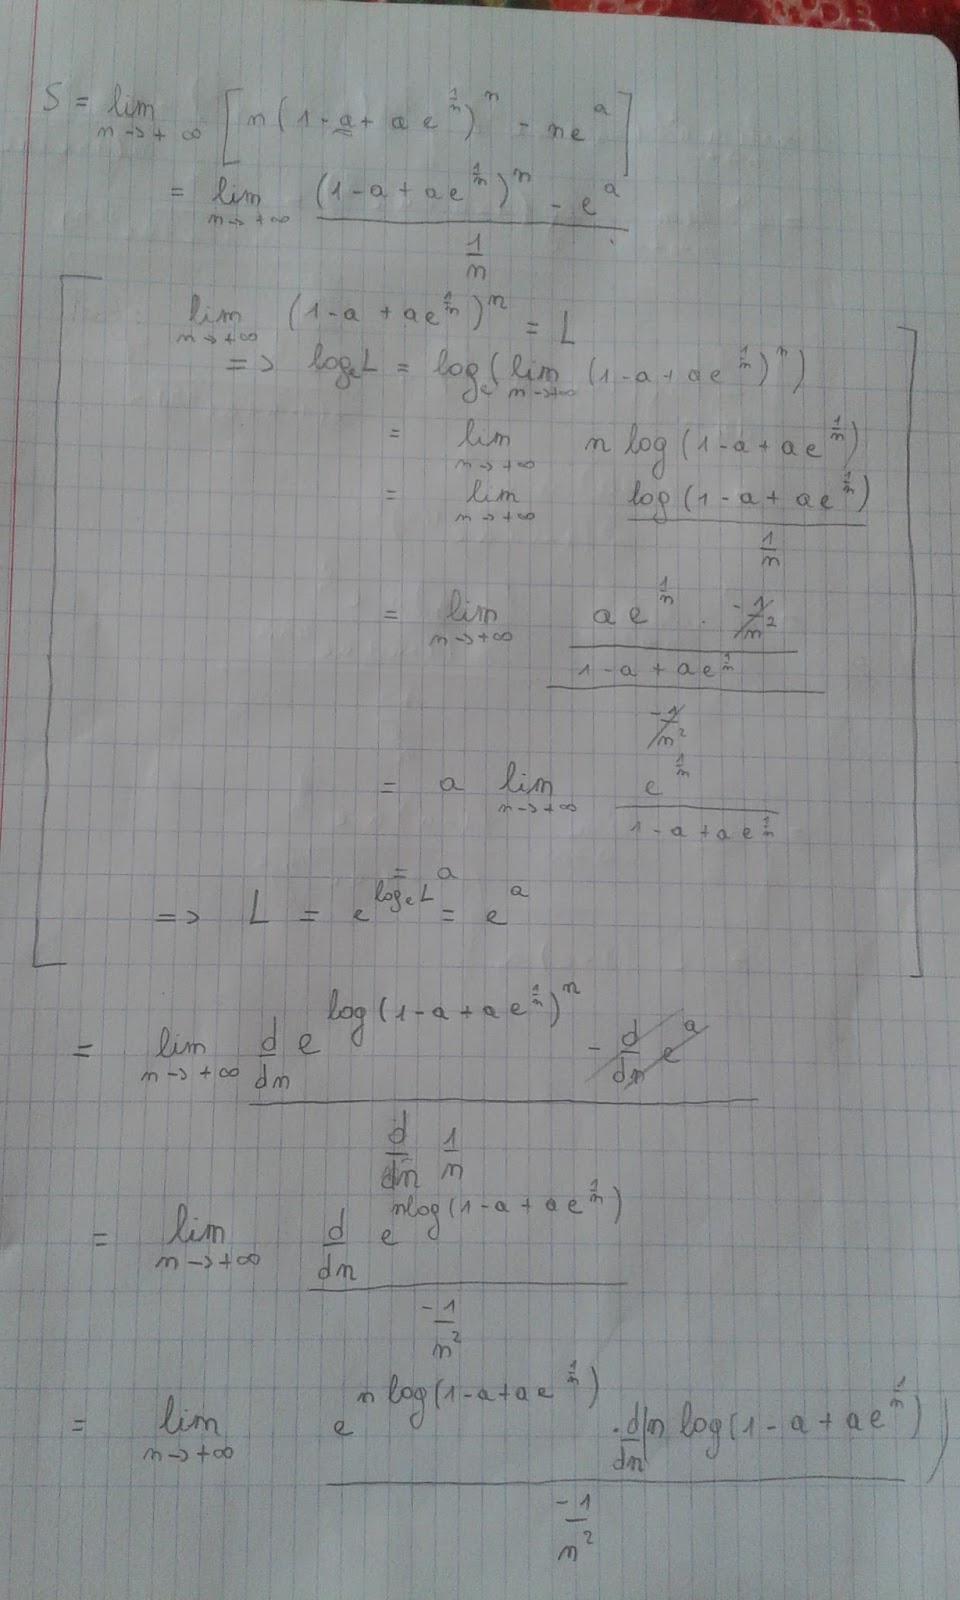 S = lim n→+∞ [ n(1-a+ a e^{1/n})^n - n e^a ]
= lim n→+∞ ((1-a+ae^{1/n})^n - e^a) / (1/n)
lim n→+∞ (1-a+ae^{1/n})^n = L
=> log_e L = log_e( lim n→+∞ (1-a+ae^{1/n})^n )
= lim n→+∞ n log(1-a+ae^{1/n})
= lim n→+∞ log(1-a+ae^{1/n}) / (1/n)
= lim n→+∞ ((ae^{1/n} · -1/n^2) / (1-a+ae^{1/n})) / (-1/n^2)
= a lim n→+∞ e^{1/n} / (1-a+ae^{1/n})
= a
=> L = e^{log_e L} = e^a
= lim n→+∞ (d/dn e^{log(1-a+ae^{1/n})^n} - d/dn e^a) / (d/dn 1/n)
= lim n→+∞ (d/dn e^{n log(1-a+ae^{1/n})}) / (-1/n^2)
= lim n→+∞ (e^{n log(1-a+ae^{1/n})} · d/dn (n log(1-a+ae^{1/n}))) / (-1/n^2)